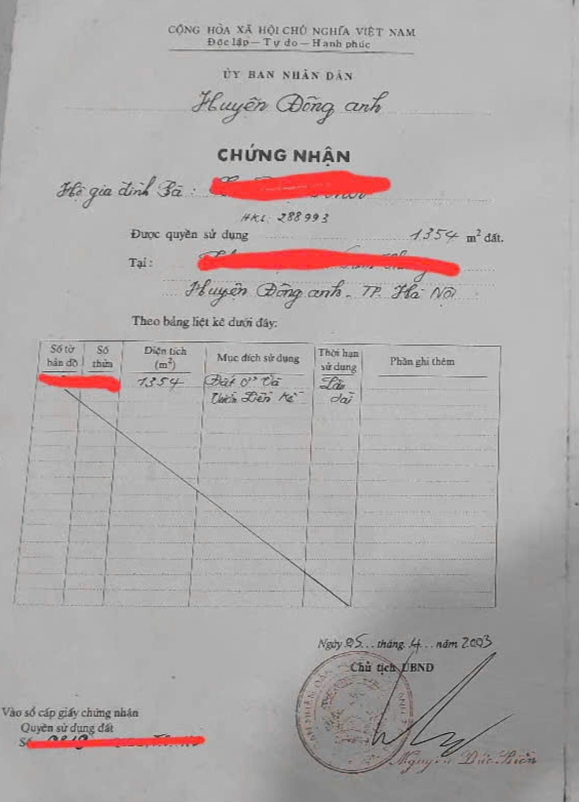 CỘNG HÒA XÃ HỘI CHỦ NGHĨA VIỆT NAM
Độc lập — Tự do — Hạnh phúc
ỦY BAN NHÂN DÂN
Huyện Đông anh
CHỨNG NHẬN
Hộ gia đình Bà :
HKL: 288993
Được quyền sử dụng 1354 m² đất.
Tại :
Huyện Đông anh - TP. Hà Nội
Theo bảng liệt kê dưới đây:
Số tờ bản đồ Số thửa Diện tích (m²) Mục đích sử dụng Thời hạn sử dụng Phần ghi thêm
1354 Đất ở và Lâu
Vườn Liền Kề dài
Ngày 05... tháng 4... năm 2003
Chủ tịch UBND
Vào sổ cấp giấy chứng nhận
Quyền sử dụng đất
Số
Nguyễn Đức